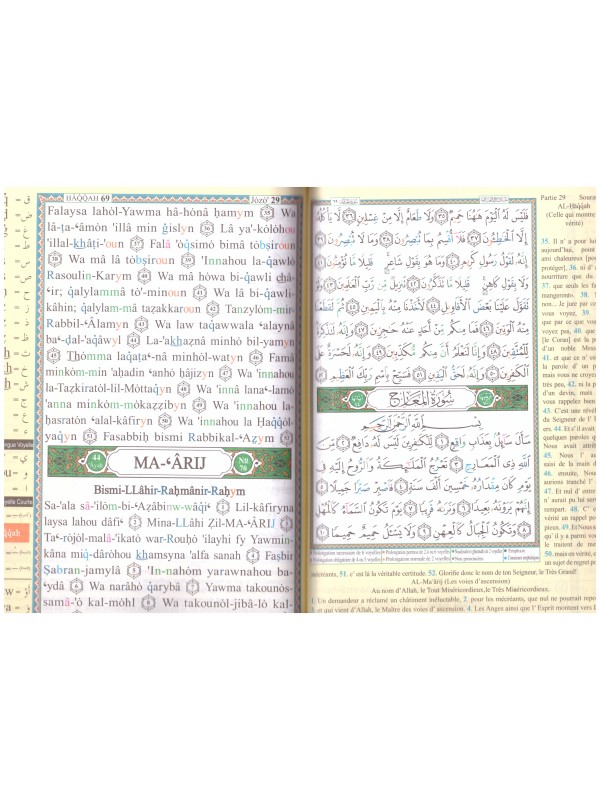 HÂQQAH 69
Józó' 29
Falaysa lahól-Yawma hâ-hónâ ḥamym 35 Wa
lâ-ṭa-ʿâmon 'illâ min ġislyn 36 Lâ ya'-kólóhou
'illal-khâṭi-'oun 37 Falâ 'óqsimó bimâ tóbṣiroun
38 Wa mâ lâ tóbṣiroun 39 'Innahou la-qawló
Rasoulin-Karym 40 Wa mâ hówa bi-qawli châ-
ʿir; qalylammâ tó'-minoun 41 Wa lâ bi-qawli-
kâhin; qalylam-mâ taẓakkaroun 42 Tanzylóm-mir-
Rabbil-ʿÂlamyn 43 Wa law taqawwala ʿalaynâ
baʿ-ḍal-'aqâwyl 44 La-'akhaẓnâ minhó bil-yamyn
45 Thómma laqaṭaʿ-nâ minhól-watyn 46 Famâ
minkóm-min 'aḥadin ʿanhó ḥâjizyn 47 Wa 'innahou
la-Taẓkiratól-lil-Móttaqyn 48 Wa 'innâ lanaʿ-lamó
'anna minkóm-mókaẓẓibyn 49 Wa 'innahou la-
ḥasratón ʿalal-kâfiryn 50 Wa 'innahou la Ḥaqqól-
yaqyn 51 Fasabbiḥ bismi Rabbikal-ʿAẓym 52
44 Âyah
MA-ʿÂRIJ
No 70
Bismi-LLâhir-Raḥmânir-Raḥym
Sa-'ala sâ-'ilóm-bi-ʿAẓâbinw-wâqiʿ 1 Lil-kâfiryna
laysa lahou dâfiʿ 2 Mina-LLâhi Ẓil-MA-ʿÂRIJ 3
Taʿ-rójól-malâ-'ikató war-Rouḥó 'ilayhi fy Yawmin-
kâna miq-dâróhou khamsyna 'alfa sanah 4 Faṣbir
Ṣabran-jamylâ 5 'In-nahóm yarawnahou ba-
ʿydâ 6 Wa narâhó qarybâ 7 Yawma takounós-
samâ-'ó kal-móhl 8 Wa takounól-jibâ-ló kal-
فَلَيْسَ لَهُ ٱلْيَوْمَ هَٰهُنَا حَمِيمٌ ٣٥ وَلَا طَعَامٌ إِلَّا مِنْ غِسْلِينٍ ٣٦ لَّا يَأْكُلُهُۥٓ
إِلَّا ٱلْخَٰطِـُٔونَ ٣٧ فَلَآ أُقْسِمُ بِمَا تُبْصِرُونَ ٣٨ وَمَا لَا تُبْصِرُونَ ٣٩
إِنَّهُۥ لَقَوْلُ رَسُولٍ كَرِيمٍ ٤٠ وَمَا هُوَ بِقَوْلِ شَاعِرٍ قَلِيلًا مَّا تُؤْمِنُونَ ٤١
وَلَا بِقَوْلِ كَاهِنٍ قَلِيلًا مَّا تَذَكَّرُونَ ٤٢ تَنزِيلٌ مِّن رَّبِّ ٱلْعَٰلَمِينَ ٤٣ وَلَوْ
تَقَوَّلَ عَلَيْنَا بَعْضَ ٱلْأَقَاوِيلِ ٤٤ لَأَخَذْنَا مِنْهُ بِٱلْيَمِينِ ٤٥ ثُمَّ لَقَطَعْنَا
مِنْهُ ٱلْوَتِينَ ٤٦ فَمَا مِنكُم مِّنْ أَحَدٍ عَنْهُ حَٰجِزِينَ ٤٧ وَإِنَّهُۥ لَتَذْكِرَةٌ
لِّلْمُتَّقِينَ ٤٨ وَإِنَّا لَنَعْلَمُ أَنَّ مِنكُم مُّكَذِّبِينَ ٤٩ وَإِنَّهُۥ لَحَسْرَةٌ عَلَى
ٱلْكَٰفِرِينَ ٥٠ وَإِنَّهُۥ لَحَقُّ ٱلْيَقِينِ ٥١ فَسَبِّحْ بِٱسْمِ رَبِّكَ ٱلْعَظِيمِ ٥٢
سُورَةُ المَعَارِجِ
بِسْمِ ٱللَّهِ ٱلرَّحْمَٰنِ ٱلرَّحِيمِ
سَأَلَ سَآئِلٌۢ بِعَذَابٍ وَاقِعٍ ١ لِّلْكَٰفِرِينَ لَيْسَ لَهُۥ دَافِعٌ ٢ مِّنَ
ٱللَّهِ ذِى ٱلْمَعَارِجِ ٣ تَعْرُجُ ٱلْمَلَٰٓئِكَةُ وَٱلرُّوحُ إِلَيْهِ فِى
يَوْمٍ كَانَ مِقْدَارُهُۥ خَمْسِينَ أَلْفَ سَنَةٍ ٤ فَٱصْبِرْ صَبْرًا جَمِيلًا ٥
إِنَّهُمْ يَرَوْنَهُۥ بَعِيدًا ٦ وَنَرَىٰهُ قَرِيبًا ٧ يَوْمَ تَكُونُ ٱلسَّمَآءُ كَٱلْمُهْلِ
٨ وَتَكُونُ ٱلْجِبَالُ كَٱلْعِهْنِ ٩ وَلَا يَسْـَٔلُ حَمِيمٌ حَمِيمًا ١٠
Partie 29 Soura
AL-Ḥâqqah
(Celle qui montre
vérité)
35. Il n' a pour lui
ami chaleureux [pou
protéger], 36. ni d'
nourriture que du
37. que seuls les fa
mangeront. 38.
non... Je jure par ce
vous voyez, 39.
que par ce que vous
voyez pas, 40. que
[le Coran] est la pa
d'un noble Mess
41. et que ce n' est
la parole d' un po
mais vous ne croyez
très peu, 42. ni la p
d'un devin, mais
vous rappelez bien
43. C'est une révél
du Seigneur de l' U
ers. 44. Et s'il avait
quelques paroles qu
Nous avait attrib
45. Nous l' au
saisi de la main d
46. ensuite, Nous
aurions tranché l'
47. Et nul d' entre
n' aurait pu lui serv
rempart. 48. C' e
vérité un rappel po
ers. 49. Et Nous s
qu'il y a parmi vou
le traitent de men
50. mais en vérité, c
un sujet de regret po
mécréants, 51. c' est là la véritable certitude. 52. Glorifie donc le nom de ton Seigneur, le Très Grand!
AL-Maʿârij (Les voies d'ascension)
Au nom d'Allah, le Tout Miséricordieux, le Très Miséricordieux.
1. Un demandeur a réclamé un châtiment inéluctable, 2. pour les mécréants, que nul ne pourrait repo
et qui vient d'Allah, le Maître des voies d' ascension. 4. Les Anges ainsi que l' Esprit montent vers L